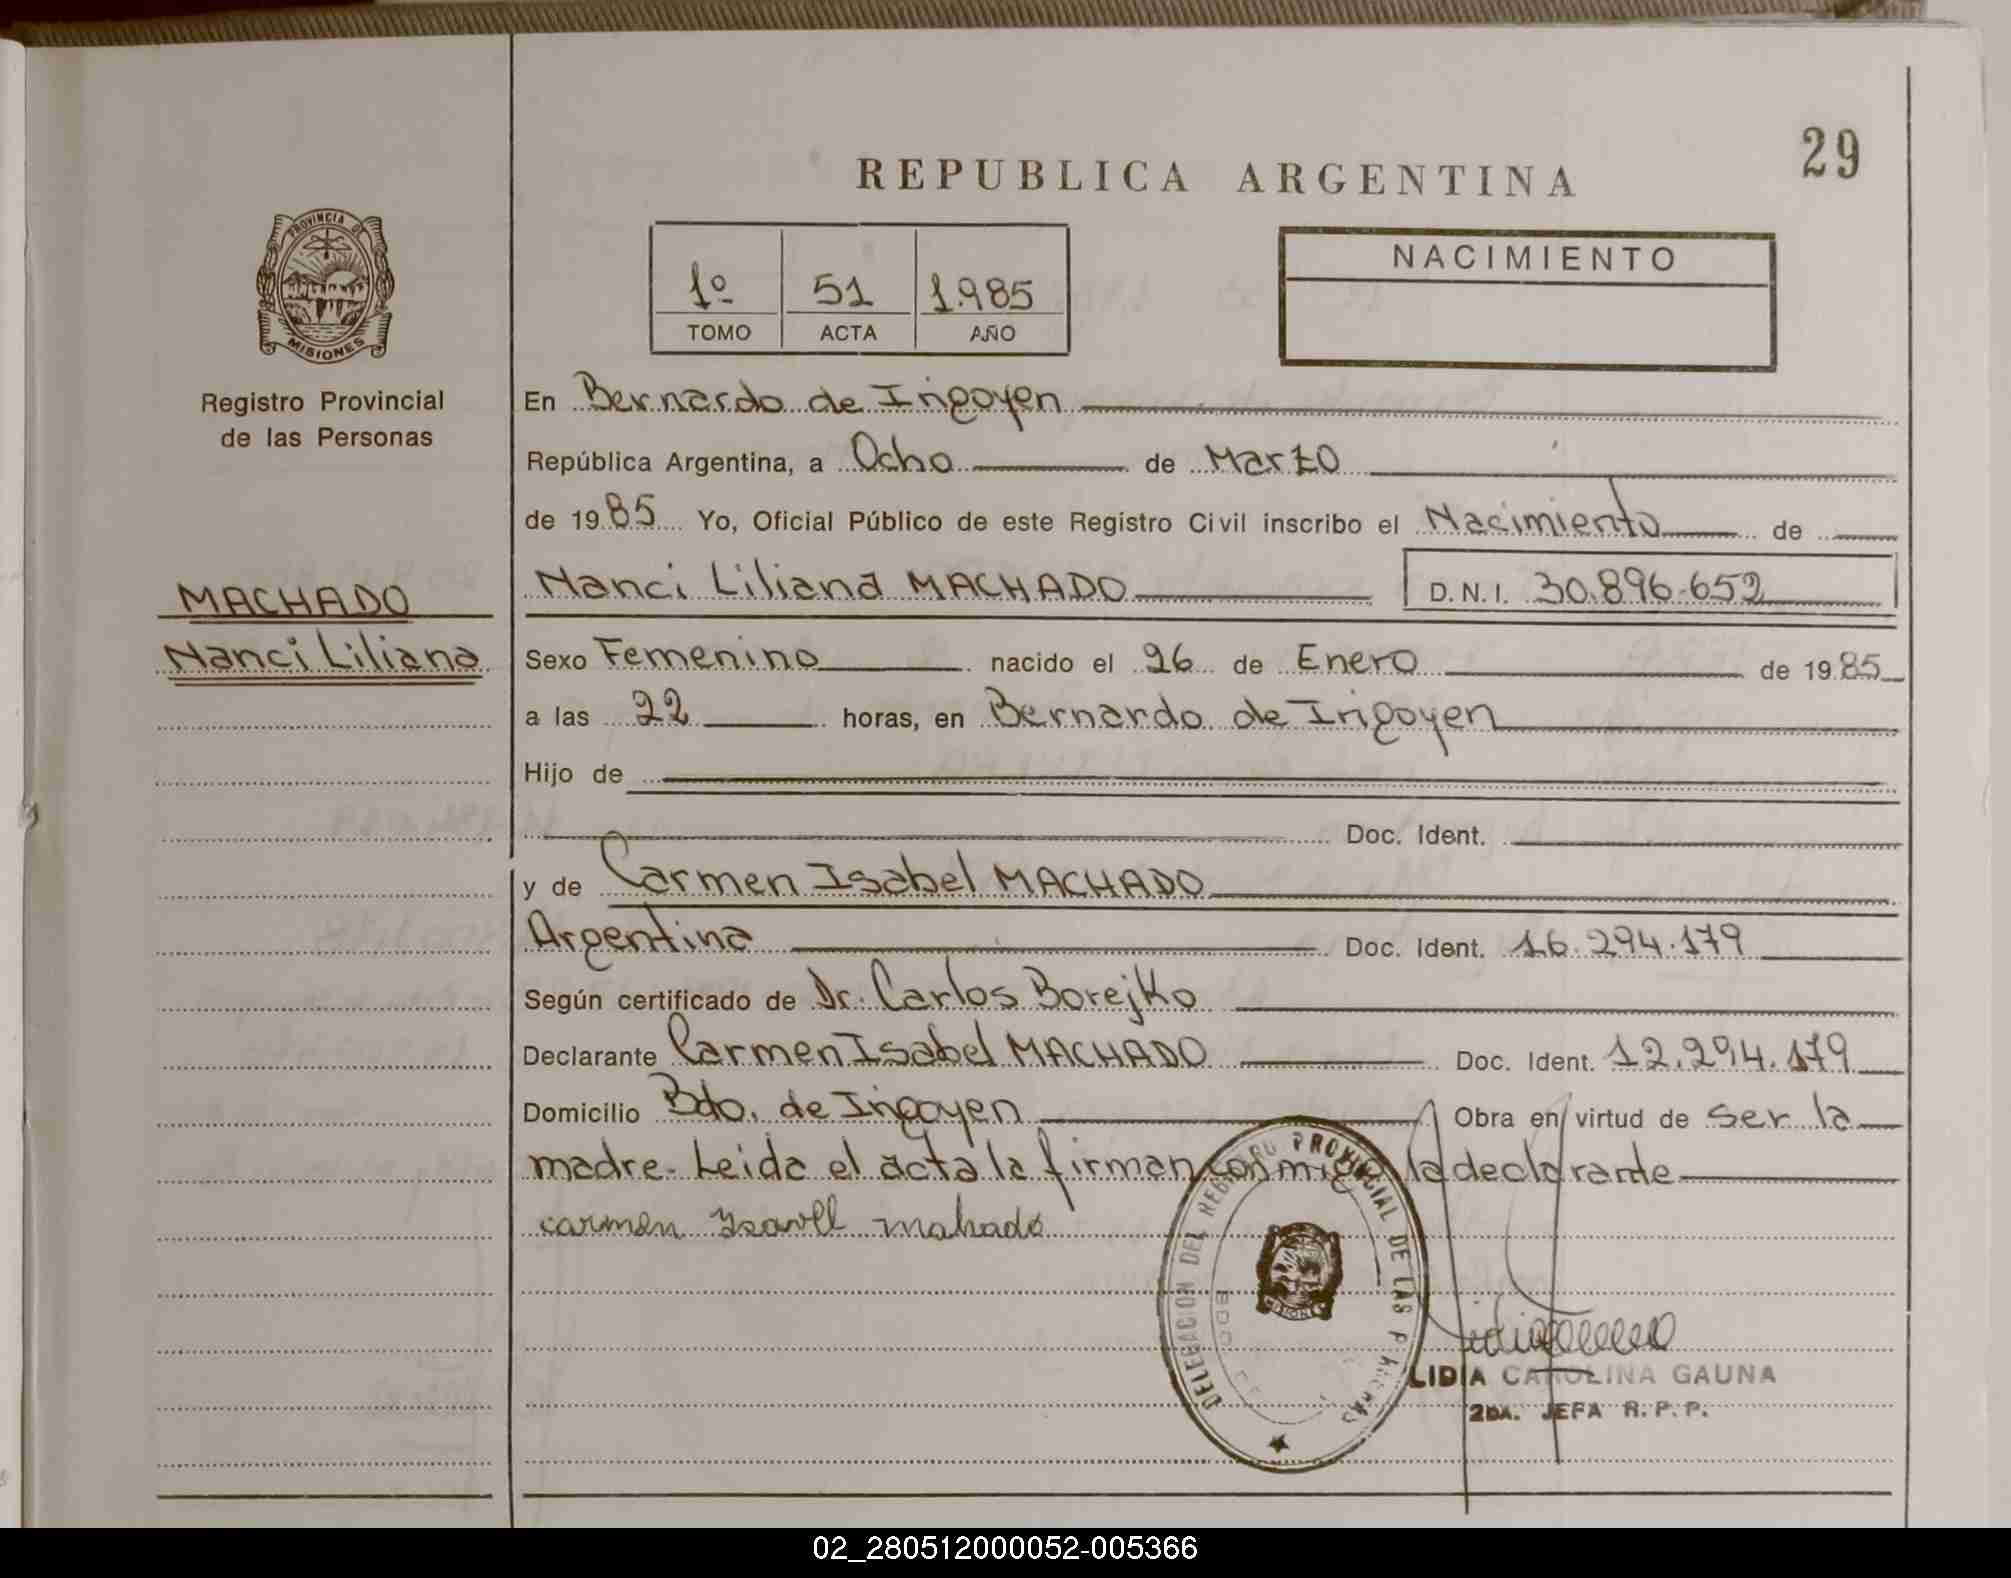 29
REPUBLICA ARGENTINA
PROVINCIA DE
MISIONES
Registro Provincial
de las Personas
1º 51 1.985
TOMO ACTA AÑO
NACIMIENTO
En Bernardo de Irigoyen
República Argentina, a Ocho de Marzo
de 1985 Yo, Oficial Público de este Registro Civil inscribo el Nacimiento de
MACHADO
Nanci Liliana
Nanci Liliana MACHADO D.N.I. 30.896.652
Sexo Femenino nacido el 26 de Enero de 1985
a las 22 horas, en Bernardo de Irigoyen
Hijo de
Doc. Ident.
y de Carmen Isabel MACHADO
Argentina Doc. Ident. 16.294.179
Según certificado de Dr. Carlos Borejko
Declarante Carmen Isabel MACHADO Doc. Ident. 12.294.179
Domicilio Bdo. de Irigoyen Obra en virtud de ser la
madre. Leida el acta la firman conmigo la declarante
carmen Ysavel mahado
DELEGACION DEL REGISTRO PROVINCIAL DE LAS P
BDO
MISIONES
LIDIA CAROLINA GAUNA
2DA. JEFA R.P.P.
02_280512000052-005366